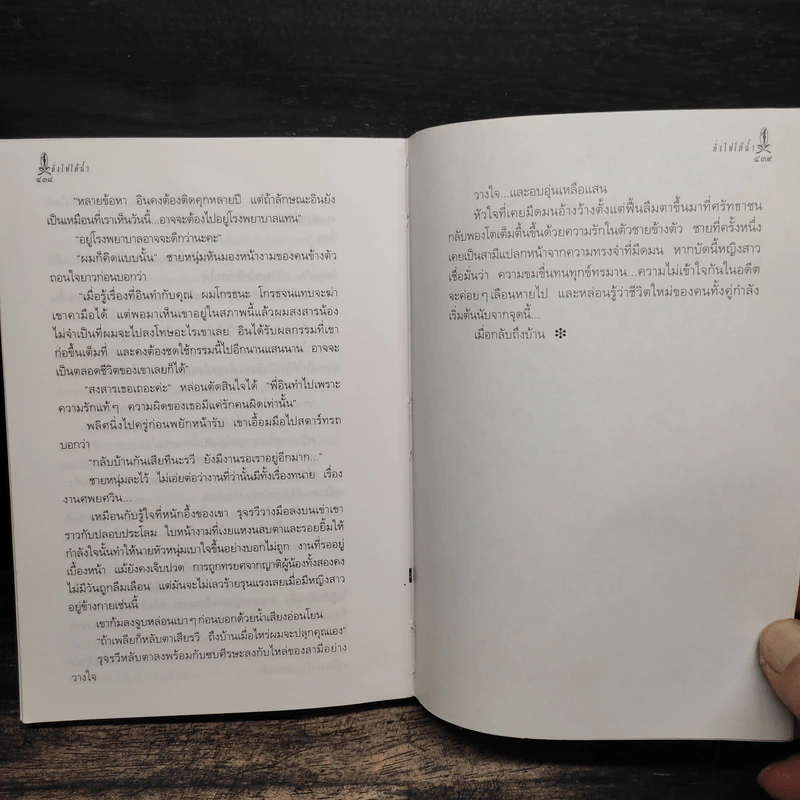 ดั่งไฟใต้น้ำ
๔๓๘
"หลายข้อหา อินคงต้องติดคุกหลายปี แต่ถ้าลักษณะอินยัง
เป็นเหมือนที่เราเห็นวันนี้...อาจจะต้องไปอยู่โรงพยาบาลแทน"
"อยู่โรงพยาบาลอาจจะดีกว่านะคะ"
"ผมก็คิดแบบนั้น" ชายหนุ่มหันมองหน้างามของคนข้างตัว
ถอนใจยาวก่อนบอกว่า
"เมื่อรู้เรื่องที่อินทำกับคุณ ผมโกรธนะ โกรธจนแทบจะฆ่า
เขาคามือได้ แต่พอมาเห็นเขาอยู่ในสภาพนี้แล้วผมสงสารน้อง
ไม่จำเป็นที่ผมจะไปลงโทษอะไรเขาเลย อินได้รับผลกรรมที่เขา
ก่อขึ้นเต็มที่ และคงต้องชดใช้กรรมนี้ไปอีกนานแสนนาน อาจจะ
เป็นตลอดชีวิตของเขาเลยก็ได้"
"สงสารเธอเถอะค่ะ" หล่อนตัดสินใจได้ "ที่อินทำไปเพราะ
ความรักแท้ๆ ความผิดของเธอมีแค่รักคนผิดเท่านั้น"
พลิศนิ่งไปครู่ก่อนพยักหน้ารับ เขาเอื้อมมือไปสตาร์ทรถ
บอกว่า
"กลับบ้านกันเสียทีนะรวี ยังมีงานรอเราอยู่อีกมาก..."
ชายหนุ่มละไว้ ไม่เอ่ยต่อว่างานที่ว่านั้นมีทั้งเรื่องทนาย เรื่อง
งานศพยศวิน...
เหมือนกับรู้ใจที่หนักอึ้งของเขา รุจรวีวางมือลงบนเข่าเขา
ราวกับปลอบประโลม ใบหน้างามที่เงยแหงนสบตาและรอยยิ้มให้
กำลังใจนั้นทำให้นายหัวหนุ่มเบาใจขึ้นอย่างบอกไม่ถูก งานที่รออยู่
เบื้องหน้า แม้ยังคงเจ็บปวด การถูกทรยศจากญาติผู้น้องทั้งสองคง
ไม่มีวันถูกลืมเลือน แต่มันจะไม่เลวร้ายรุนแรงเลยเมื่อมีหญิงสาว
อยู่ข้างกายเช่นนี้
เขาก้มลงจูบหล่อนเบาๆ ก่อนบอกด้วยน้ำเสียงอ่อนโยน
"ถ้าเพลียก็หลับตาเสียรวี ถึงบ้านเมื่อไหร่ผมจะปลุกคุณเอง"
รุจรวีหลับตาลงพร้อมกับซบศีรษะลงกับไหล่ของสามีอย่าง
วางใจ
ดั่งไฟใต้น้ำ
๔๓๙
วางใจ...และอบอุ่นเหลือแสน
หัวใจที่เคยมืดมนอ้างว้างตั้งแต่ฟื้นลืมตาขึ้นมาที่ศรัทธาชน
กลับพองโตเต็มตื้นขึ้นด้วยความรักในตัวชายข้างตัว ชายที่ครั้งหนึ่ง
เคยเป็นสามีแปลกหน้าจากความทรงจำที่มืดมน หากบัดนี้หญิงสาว
เชื่อมั่นว่า ความขมขื่นทนทุกข์ทรมาน...ความไม่เข้าใจกันในอดีต
จะค่อยๆ เลือนหายไป และหล่อนรู้ว่าชีวิตใหม่ของคนทั้งคู่กำลัง
เริ่มต้นนับจากจุดนี้...
เมื่อกลับถึงบ้าน ❇